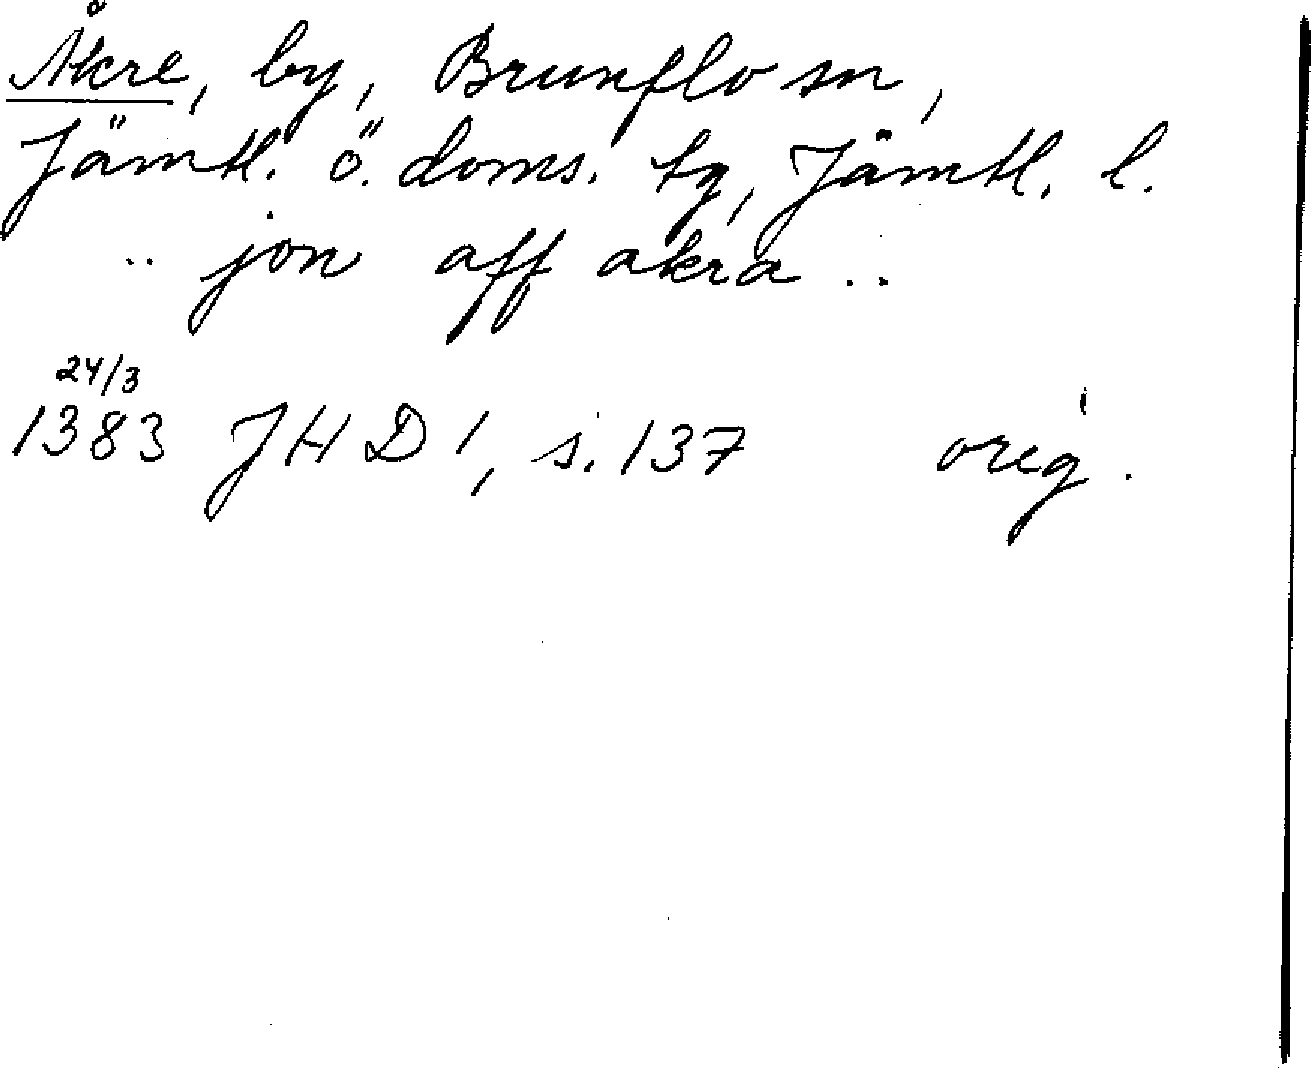 Åkre, by, Brunflo sn,
Jämtl. ö. doms. tg, Jämtl. l.
.. jon aff akra ..
24/3
1383 JHD 1, s. 137 orig.